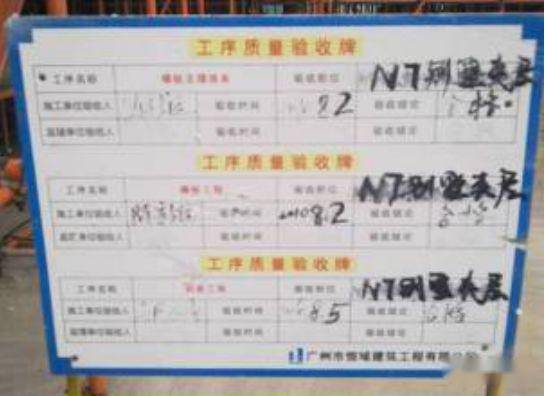 工序质量验收牌
工序名称 验收部位 N7别墅夹层
施工单位验收人 验收时间 8.2 验收结论 合格
监理单位验收人 验收时间 验收结论
工序质量验收牌
工序名称 模板工程 验收部位 N7别墅夹层
施工单位验收人 验收时间 8.2 验收结论 合格
监理单位验收人 验收时间 验收结论
工序质量验收牌
工序名称 验收部位 N7别墅夹层
施工单位验收人 验收时间 8.5 验收结论 合格
监理单位验收人 验收时间 验收结论
广州市恒域建筑工程有限公司